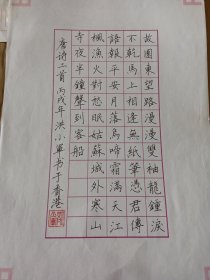 故園東望路漫漫雙袖龍鍾淚
不乾馬上相逢無紙筆憑君傳
語報平安月落烏啼霜滿天江
楓漁火對愁眠姑蘇城外寒山
寺夜半鐘聲到客船
唐诗二首 丙戌年 洪小軍书于香港